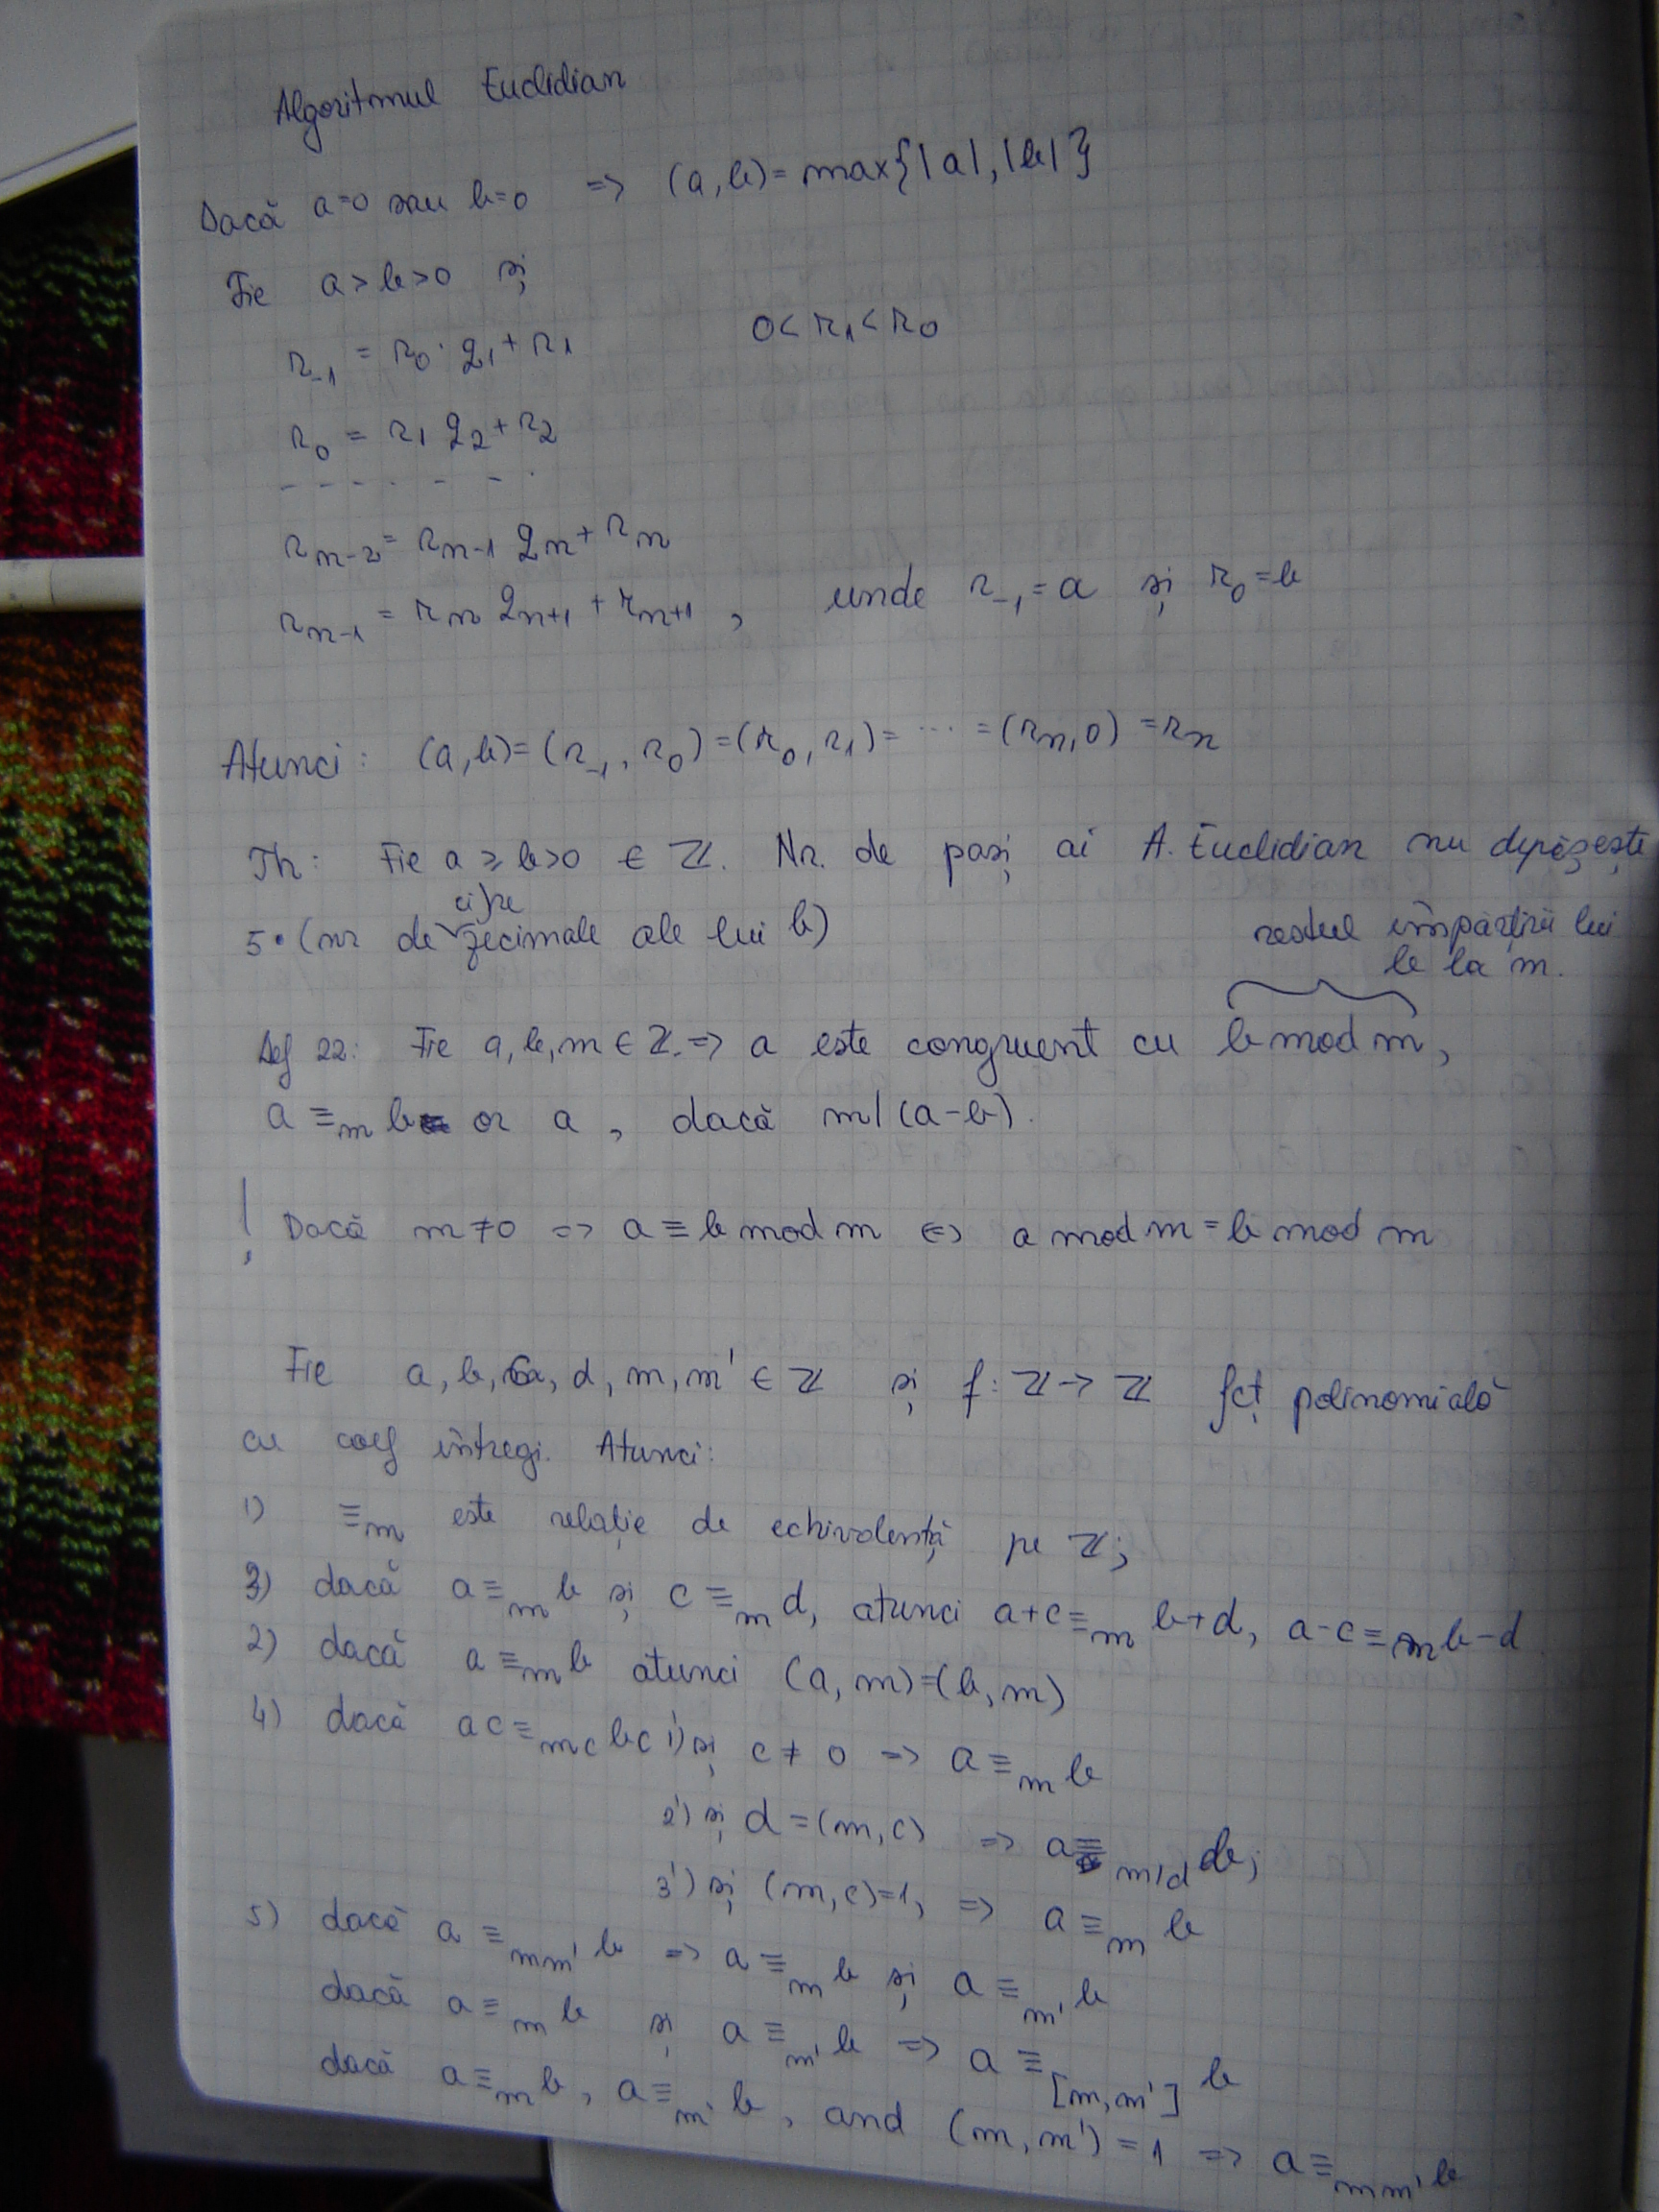 Algoritmul Euclidian
Dacă a=0 sau b=0 => (a,b)=max{|a|,|b|}
Fie a>b>0 și
r₋₁ = r₀·q₁+r₁ 0<r₁<r₀
r₀ = r₁ q₂+r₂
- - - - - - .
rₙ₋₂ = rₙ₋₁ qₙ+rₙ
rₙ₋₁ = rₙ qₙ₊₁ + rₙ₊₁ , unde r₋₁=a și r₀=b
Atunci: (a,b)=(r₋₁,r₀)=(r₀,r₁)= ... =(rₙ,0)=rₙ
Th: Fie a ≥ b>0 ∈ ℤ. Nr. de pași ai A. Euclidian nu depășește
cifre
5·(nr de zecimale ale lui b)
restul împărțirii lui
b la m.
Def 22: Fie a,b,m ∈ ℤ. => a este congruent cu b mod m,
a ≡_m b or a , dacă m|(a-b).
! Dacă m≠0 => a ≡ b mod m <=> a mod m = b mod m
Fie a, b, c, d, m, m' ∈ ℤ și f: ℤ -> ℤ fct polinomială
cu coef întregi. Atunci:
1) ≡_m este relație de echivalență pe ℤ;
3) dacă a ≡_m b și c ≡_m d, atunci a+c ≡_m b+d, a-c ≡_m b-d
2) dacă a ≡_m b atunci (a,m)=(b,m)
4) dacă ac ≡_mc bc 1') și c ≠ 0 => a ≡_m b
2') și d=(m,c) => a ≡_m/d b;
3') și (m,c)=1, => a ≡_m b
5) dacă a ≡_mm' b => a ≡_m b și a ≡_m' b
dacă a ≡_m b și a ≡_m' b => a ≡_[m,m'] b
dacă a ≡_m b, a ≡_m' b, and (m,m')=1 => a ≡_mm' b